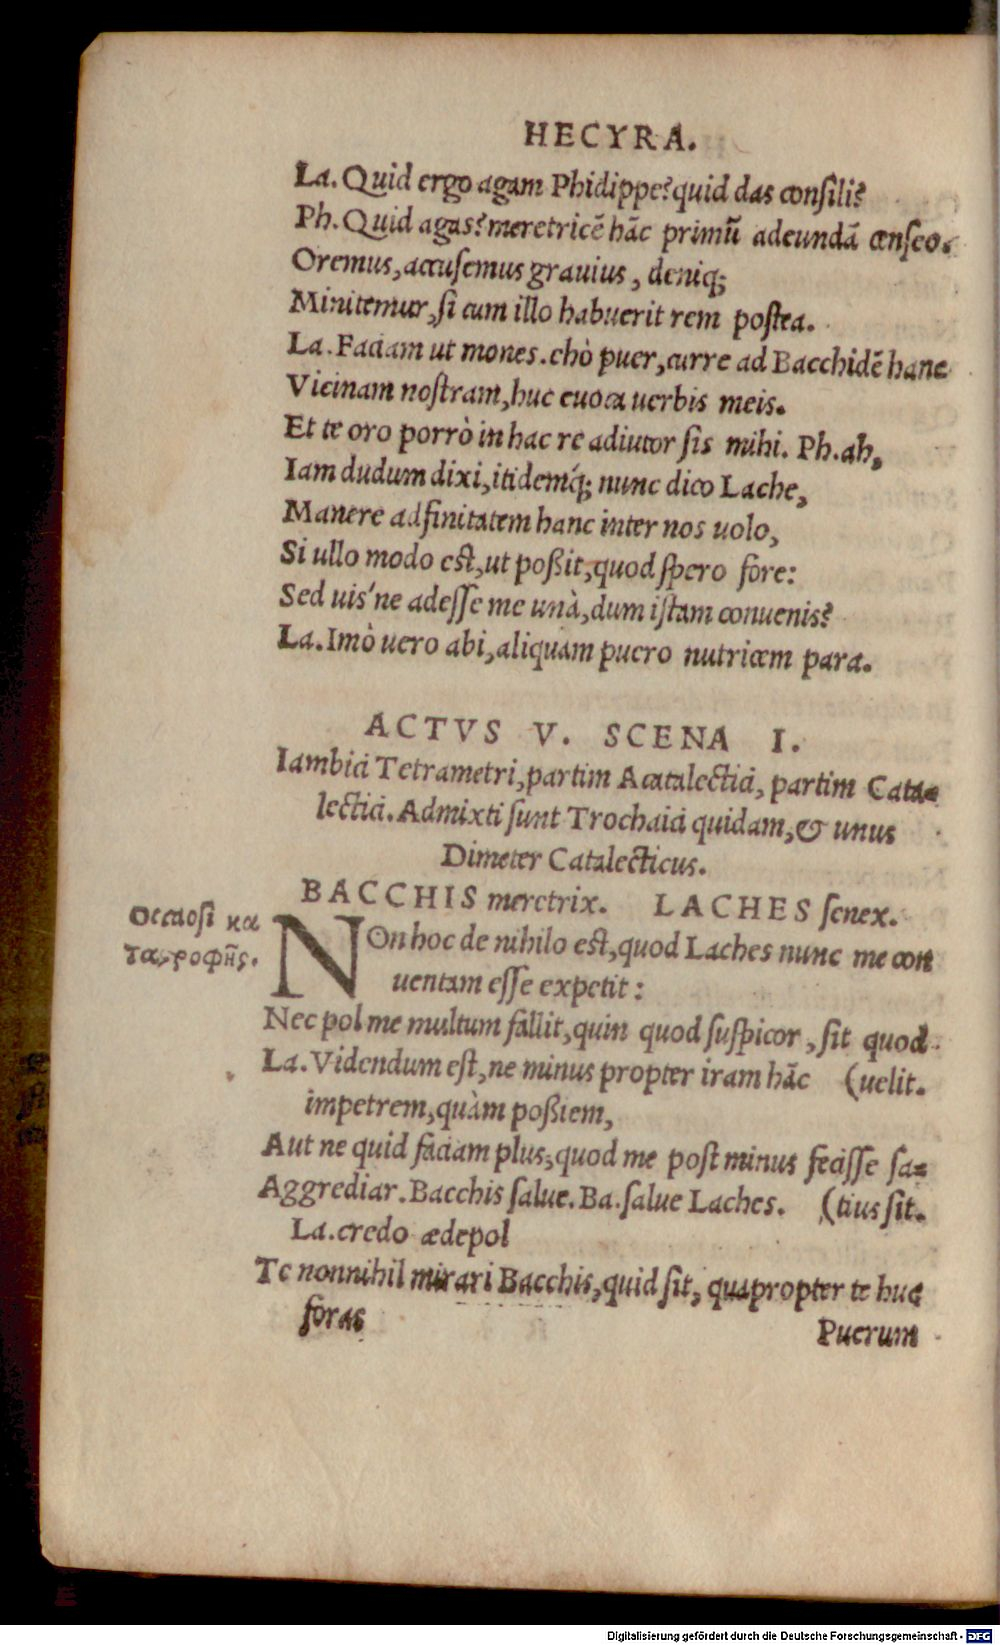 HECYRA.
La. Quid ergo agam Phidippe? quid das consilii?
Ph. Quid agas? meretricē hāc primū adeundā censeo.
Oremus, accusemus grauius, deniq;
Minitemur, si cum illo habuerit rem postea.
La. Faciam ut mones. ehò puer, curre ad Bacchidē hanc
Vicinam nostram, huc euoca uerbis meis.
Et te oro porrò in hac re adiutor sis mihi. Ph. ah,
Iam dudum dixi, itidemq́; nunc dico Lache,
Manere adfinitatem hanc inter nos uolo,
Si ullo modo est, ut poßit, quod spero fore:
Sed uis'ne adesse me unà, dum istam conuenis?
La. Imò uero abi, aliquam puero nutricem para.
ACTVS V. SCENA I.
Iambici Tetrametri, partim Acatalectici, partim Cata-
lectici. Admixti sunt Trochaici quidam, & unus
Dimeter Catalecticus.
BACCHIS meretrix. LACHES senex.
Occasio κα
ταςροφῆς.
NOn hoc de nihilo est, quod Laches nunc me con
uentam esse expetit:
Nec pol me multum fallit, quin quod suspicor, sit quod
La. Videndum est, ne minus propter iram hāc (uelit.
impetrem, quàm poßiem,
Aut ne quid faciam plus, quod me post minus fecisse sa-
Aggrediar. Bacchis salue. Ba. salue Laches. (tius sit.
La. credo ædepol
Te nonnihil mirari Bacchis, quid sit, quapropter te huc
foras
Puerum
Digitalisierung gefördert durch die Deutsche Forschungsgemeinschaft - DFG